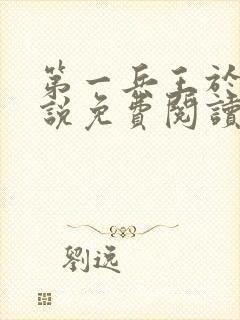 第一兵王於
說免費閱讀
劉逸